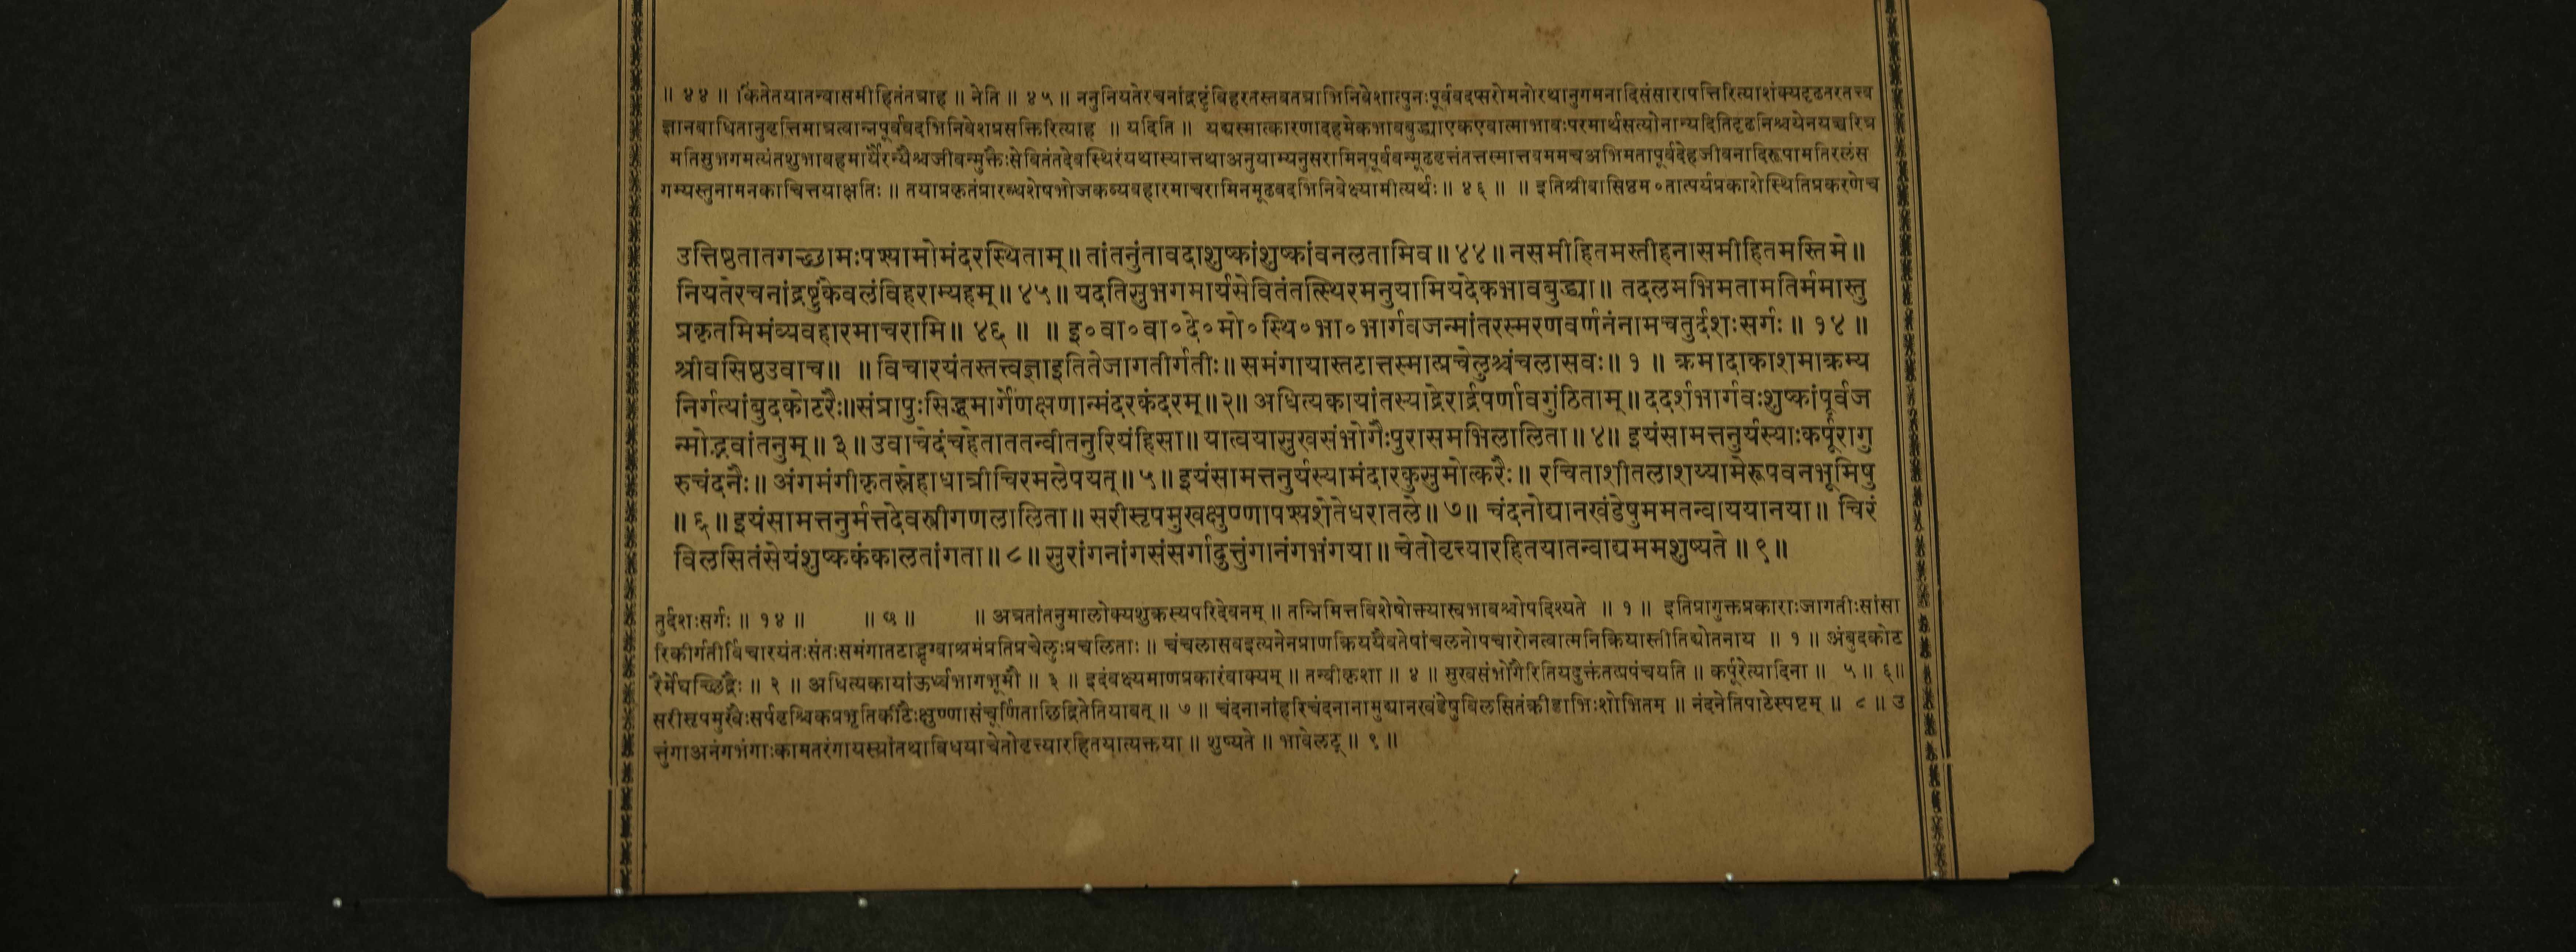 ॥ ४४ ॥ किंतेतयातन्वासमीहितंतत्राह ॥ नेति ॥ ४५ ॥ ननुनियतेरचनांद्रष्टुंविहरतस्तवतत्राभिनिवेशात्पुनःपूर्ववदप्सरोमनोरथानुगमनादिसंसारापत्तिरित्याशंक्यदृढतरतत्त्व
ज्ञानबाधितानुवृत्तिमात्रत्वान्नपूर्ववदभिनिवेशप्रसक्तिरित्याह ॥ यदिति ॥ यद्यस्मात्कारणादहमेकभावबुद्ध्याएकएवात्माभावःपरमार्थसत्योनान्यदितिदृढनिश्चयेनयच्चरित्र
मतिसुभगमत्यंतशुभावहमार्यैरन्यैश्चजीवन्मुक्तैःसेवितंतदेवस्थिरंयथास्यात्तथाअनुयाम्यनुसरामिनपूर्ववन्मूढवृत्तंतत्तस्मात्तवममचअभिमतापूर्वदेहजीवनादिरूपामतिरलंस
गम्यस्तुनामनकाचित्तयाक्षतिः ॥ तयाप्रकृतंप्रारब्धशेषभोजकव्यवहारमाचरामिनमूढवदभिनिवेक्ष्यामीत्यर्थः ॥ ४६ ॥ ॥ इतिश्रीवासिष्ठम॰तात्पर्यप्रकाशेस्थितिप्रकरणेच
उत्तिष्ठतातगच्छामःपश्यामोमंदरस्थिताम् ॥ तांतनुंतावदाशुष्कांशुष्कांवनलतामिव ॥ ४४ ॥ नसमीहितमस्तीहनासमीहितमस्तिमे ॥
नियतेरचनांद्रष्टुंकेवलंविहराम्यहम् ॥ ४५ ॥ यदतिसुभगमार्यसेवितंतत्स्थिरमनुयामियदेकभावबुद्ध्या ॥ तदलमभिमतामतिर्ममास्तु
प्रकृतमिमंव्यवहारमाचरामि ॥ ४६ ॥ ॥ इ॰वा॰वा॰दे॰मो॰स्थि॰भा॰भार्गवजन्मांतरस्मरणवर्णनंनामचतुर्दशःसर्गः ॥ १४ ॥
श्रीवसिष्ठउवाच ॥ ॥ विचारयंतस्तत्त्वज्ञाइतितेजागतीर्गतीः ॥ समंगायास्तटात्तस्मात्प्रचेलुश्चंचलासवः ॥ १ ॥ क्रमादाकाशमाक्रम्य
निर्गत्यांबुदकोटरैः ॥ संप्रापुःसिद्धमार्गेणक्षणान्मंदरकंदरम् ॥ २ ॥ अधित्यकायांतस्याद्रेरार्द्रपर्णावगुंठिताम् ॥ ददर्शभार्गवःशुष्कांपूर्वज
न्मोद्भवांतनुम् ॥ ३ ॥ उवाचेदंचहेताततन्वीतनुरियंहिसा ॥ यात्वयासुखसंभोगैःपुरासमभिलालिता ॥ ४ ॥ इयंसामत्तनुर्यस्याःकर्पूरागु
रुचंदनैः ॥ अंगमंगीकृतस्नेहाधात्रीचिरमलेपयत् ॥ ५ ॥ इयंसामत्तनुर्यस्यामंदारकुसुमोत्करैः ॥ रचिताशीतलाशय्यामेरूपवनभूमिषु
॥ ६ ॥ इयंसामत्तनुर्मत्तदेवस्त्रीगणलालिता ॥ सरीसृपमुखक्षुण्णापश्यशेतेधरातले ॥ ७ ॥ चंदनोद्यानखंडेषुममतन्वाययानया ॥ चिरं
विलसितंसेयंशुष्ककंकालतांगता ॥ ८ ॥ सुरांगनांगसंसर्गादुत्तुंगानंगभंगया ॥ चेतोवृत्त्यारहितयातन्वाद्यममशुष्यते ॥ ९ ॥
तुर्दशःसर्गः ॥ १४ ॥ ॥ ७ ॥ ॥ अत्रतांतनुमालोक्यशुक्रस्यपरिदेवनम् ॥ तन्निमित्तविशेषोक्त्यास्वभावश्चोपदिश्यते ॥ १ ॥ इतिप्रागुक्तप्रकाराःजागतीःसांसा
रिकीर्गतीर्विचारयंतःसंतःसमंगातटाद्भृग्वाश्रमंप्रतिप्रचेलुःप्रचलिताः ॥ चंचलासवइत्यनेनप्राणक्रिययैवतेषांचलनोपचारोनत्वात्मनिक्रियास्तीतिद्योतनाय ॥ १ ॥ अंबुदकोट
रैर्मेघच्छिद्रैः ॥ २ ॥ अधित्यकायांऊर्ध्वभागभूमौ ॥ ३ ॥ इदंवक्ष्यमाणप्रकारंवाक्यम् ॥ तन्वीकृशा ॥ ४ ॥ सुखसंभोगैरितियदुक्तंतत्प्रपंचयति ॥ कर्पूरेत्यादिना ॥ ५ ॥ ६॥
सरीसृपमुखैःसर्पवृश्चिकप्रभृतिकीटैःक्षुण्णासंचूर्णिताछिद्रितेतियावत् ॥ ७ ॥ चंदनानांहरिचंदनानामुद्यानखंडेषुविलसितंक्रीडाभिःशोभितम् ॥ नंदनेतिपाठेस्पष्टम् ॥ ८ ॥ उ
त्तुंगाअनंगभंगाःकामतरंगायस्यांतथाविधयाचेतोवृत्त्यारहितयात्यक्तया ॥ शुष्यते ॥ भावेलट् ॥ ९ ॥